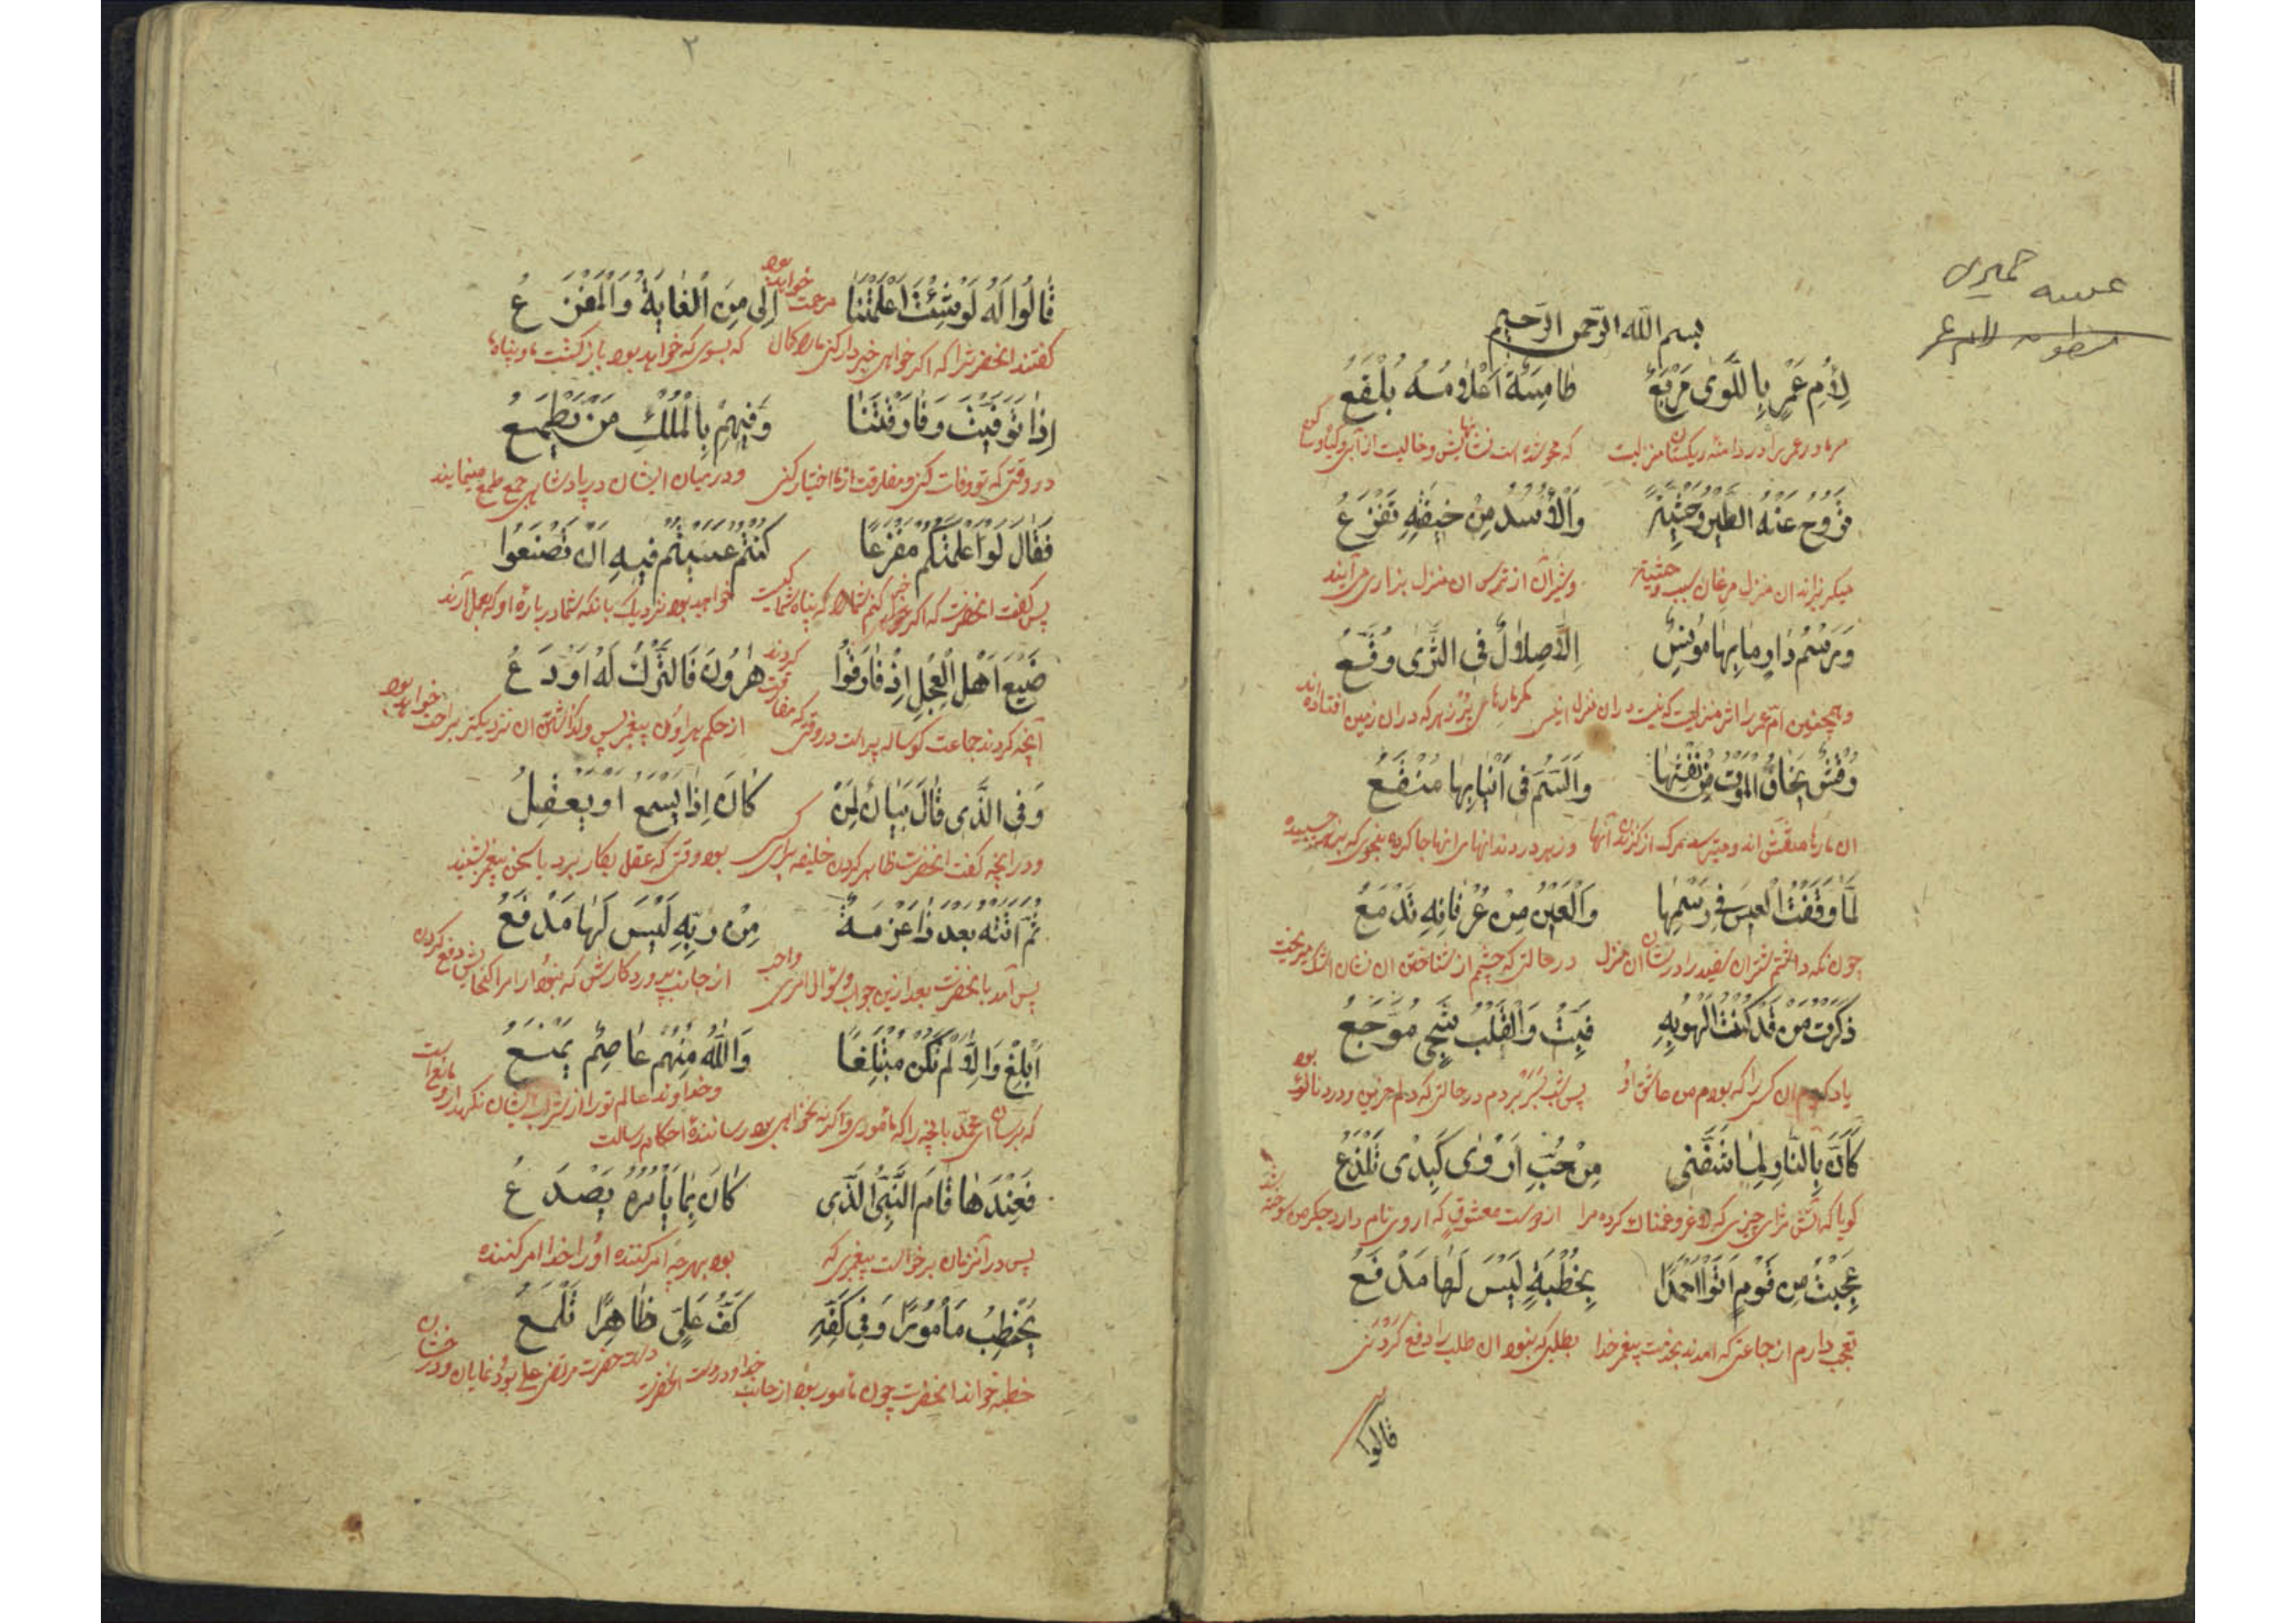 بسم الله الرحمن الرحيم
لِأُمِّ عَمْرٍ بِاللَّوَى مَرْبَعُ طَامِسَةٌ أَعْلَامُهُ بَلْقَعُ
مر مادر عمر را در دامنه ریکستان منزلیست که محو شده است نشانهایش و خالیست از آب و گیاه
تَرُوحُ عَنْهُ الطَّيْرُ وَحْشِيَّةً وَالْأُسْدُ مِنْ خِيفَتِهِ تَفْزَعُ
میکریزند از ان منزل مرغان بسبب وحشیة و شیران از ترس ان منزل بزاری می آیند
وَرَسْمُ دَارٍ مَا بِهَا مُونِسٌ إِلَّا صِلَالٌ فِي الثَّرَى وُقَّعُ
و همچنین ام عمر را اثر منزلیست که نیست در ان منزل انیسی مکر مارهای پر زهر که در ان زمین افتاده اند
رُقْشٌ يَخَافُ الْمَوْتُ مِنْ نَفْثِهَا وَالسَّمُّ فِي أَنْيَابِهَا مُنْقَعُ
ان مارها منقش اند و میترسد مرک از کزندن آنها و زهر در دندانهای انها جا کرده
لَمَّا وَقَفْتُ الْعِيسَ فِي رَسْمِهَا وَالْعَيْنُ مِنْ عِرْفَانِهِ تَدْمَعُ
چون نکه داشتم شتران سفید را در نشان ان منزل در حالتی که چشم از شناختن ان نشان اشک میریخت
ذَكَرْتُ مَنْ قَدْ كُنْتُ أَلْهُو بِهِ فَبِتُّ وَالْقَلْبُ شَجٍ مُوجَعُ
یاد کردم ان کسی را که بودم من عاشق او پس شب بسر بردم در حالتی که دلم حزین و دردناک بود
كَأَنَّ بِالنَّارِ لِمَا شَفَّنِي مِنْ حُبِّ أَرْوَى كَبِدِي تَلْذَعُ
کویا که آتش برای چیزی که لاغر و غمناک کرده مرا از دوستی معشوقی که اروی نام دارد جکر من سوخته شد
عَجِبْتُ مِنْ قَوْمٍ أَتَوْا أَحْمَدًا بِخُطْبَةٍ لَيْسَ لَهَا مَدْفَعُ
تعجب دارم از جماعتی که امدند بخدمت پیغمبر خدا بطلبی که نبود ان طلب را دفع کردنی
قالوا
حمیری
۲
قَالُوا لَهُ لَوْ شِئْتَ أَعْلَمْتَنَا إِلَى مَنِ الْغَايَةُ وَالْمَفْزَعُ
کفتند انحضرت را که اکر خواهی خبردار کنی ما را که بسوی که خواهد بود بازکشت ما و پناه ما
إِذَا تُوُفِّيتَ وَفَارَقْتَنَا وَفِيهِمْ بِالْمُلْكِ مَنْ يَطْمَعُ
در وقتی که تو وفات کنی و مفارقت از ما اختیار کنی و در میان ایشان در پادشاهی جمع طمع مینمایند
فَقَالَ لَوْ أَعْلَمْتُكُمْ مَفْزَعًا كُنْتُمْ عَسَيْتُمْ فِيهِ أَنْ تَصْنَعُوا
پس کفت انحضرت که اکر خبر کنم شما را که پناه شما کیست خواهید بود نزدیک بانکه شما در باره او بعمل آرند
صَنِيعَ أَهْلِ الْعِجْلِ إِذْ فَارَقُوا هَارُونَ فَالتَّرْكُ لَهُ أَوْدَعُ
آنچه کردند جماعت کوساله پرست در وقتی که مفارقت کردند از حکم هارون پیغمبر پس واکذاشتن ان نزدیکتر براحت خواهد بود
وَفِي الَّذِي قَالَ بَيَانٌ لِمَنْ كَانَ إِذَا يَسْمَعُ أَوْ يَعْقِلُ
و در انچه کفت انحضرت ظاهر کردن خلیفه برای کسی بود وقتی که عقل بکار برد یا سخن پیغمبر بشنید
ثُمَّ أَتَتْهُ بَعْدَ ذَا عَزْمَةٌ مِنْ رَبِّهِ لَيْسَ لَهَا مَدْفَعُ
پس آمد بانحضرت بعد ازین جواب و سؤال امری واجب از جانب پروردکارش که نبود ان امر را کنجایش دفع کردن
أَبْلِغْ وَإِلَّا لَمْ تَكُنْ مُبْلِغًا وَاللَّهُ مِنْهُمْ عَاصِمٌ يَمْنَعُ
که برسان ای محمد بانچه را که ماموری و اکر نه نخواهی بود رسانندهٔ احکام رسالت
و خداوند عالم تو را از شر ایشان نکهدار و مانع است
فَعِنْدَهَا قَامَ النَّبِيُّ الَّذِي كَانَ بِمَا يَأْمُرُهُ يَصْدَعُ
پس در آنزمان برخواست پیغمبری که بود بهرچه امر کننده او را خدا امر کننده
يَخْطُبُ مَأْمُورًا وَفِي كَفِّهِ كَفُّ عَلِيٍّ ظَاهِرًا تَلْمَعُ
خطبه خواند انحضرت چون مامور بود از جانب خدا و در دست انحضرت دست حضرت مرتضی علی بود نمایان و درخشان